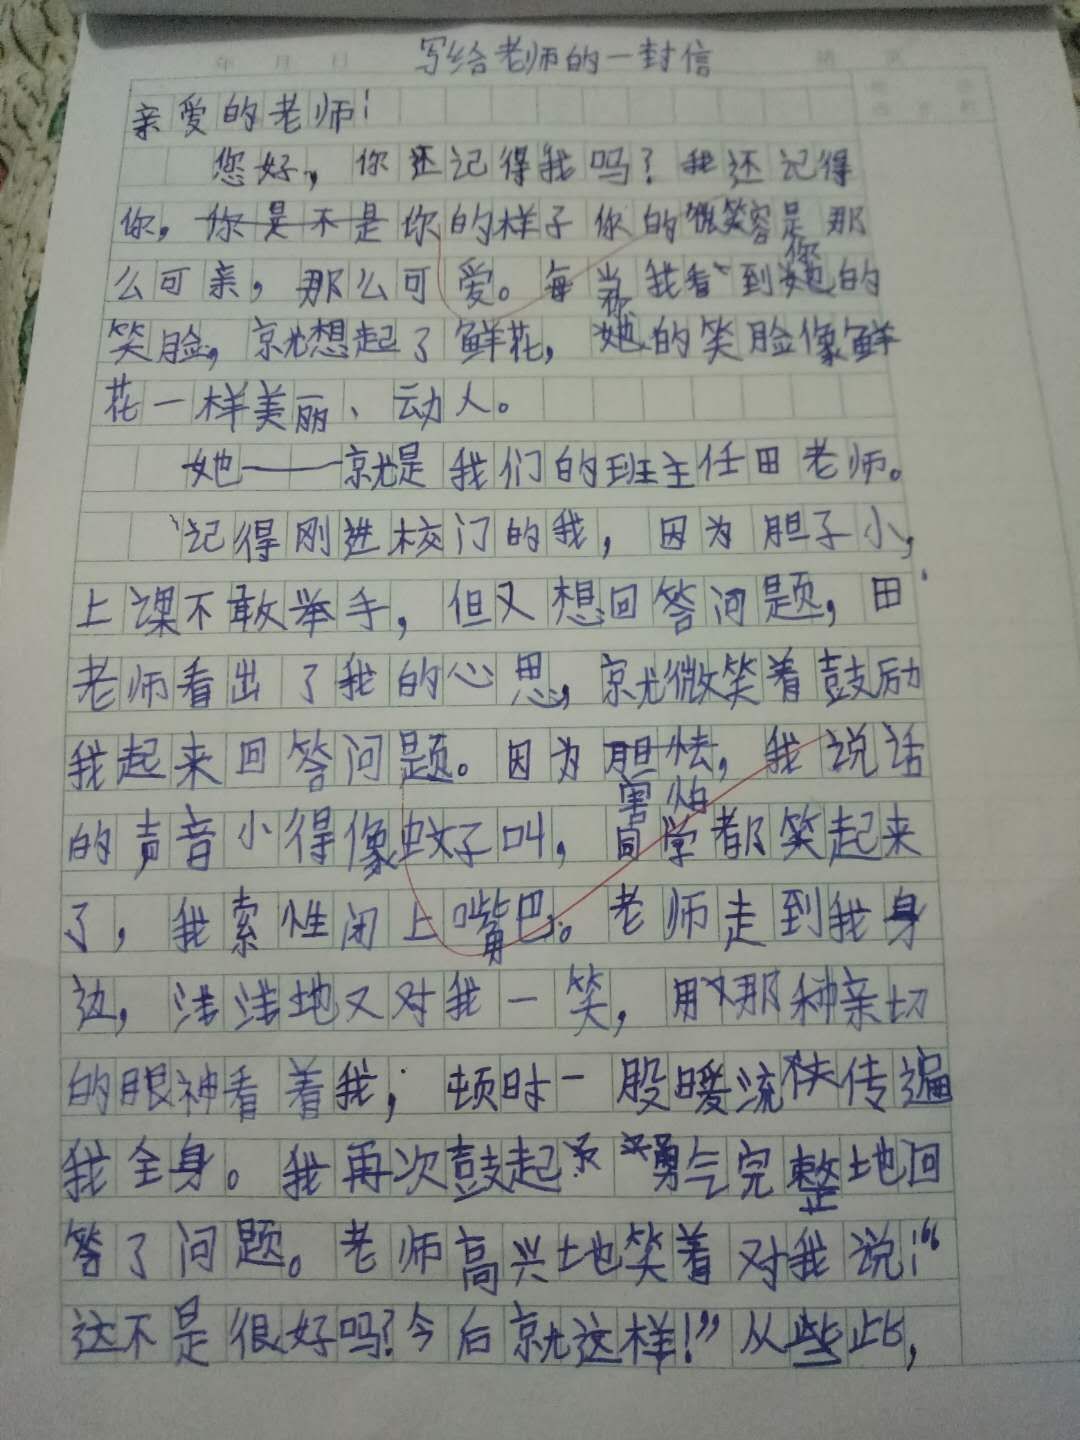 写给老师的一封信
年 月 日
亲爱的老师!
您好,你还记得我吗?我还记得
你,你是不是你的样子你的微笑容是那
么可亲,那么可爱。每当我看到她您的
笑脸,就想起了鲜花,她您的笑脸像鲜
花一样美丽、动人。
她——就是我们的班主任田老师。
记得刚进校门的我,因为胆子小,
上课不敢举手,但又想回答问题,田
老师看出了我的心思,就微笑着鼓励
我起来回答问题。因为胆怯害怕,我说话
的声音小得像蚊子叫,同学都笑起来
了,我索性闭上嘴巴。老师走到我身
边,浅浅地又对我一笑,用那种亲切
的眼神看着我;顿时一股暖流快传遍
我全身。我再次鼓起勇气完整地回
答了问题。老师高兴地笑着对我说:“
这不是很好吗?今后就这样!”从些此,